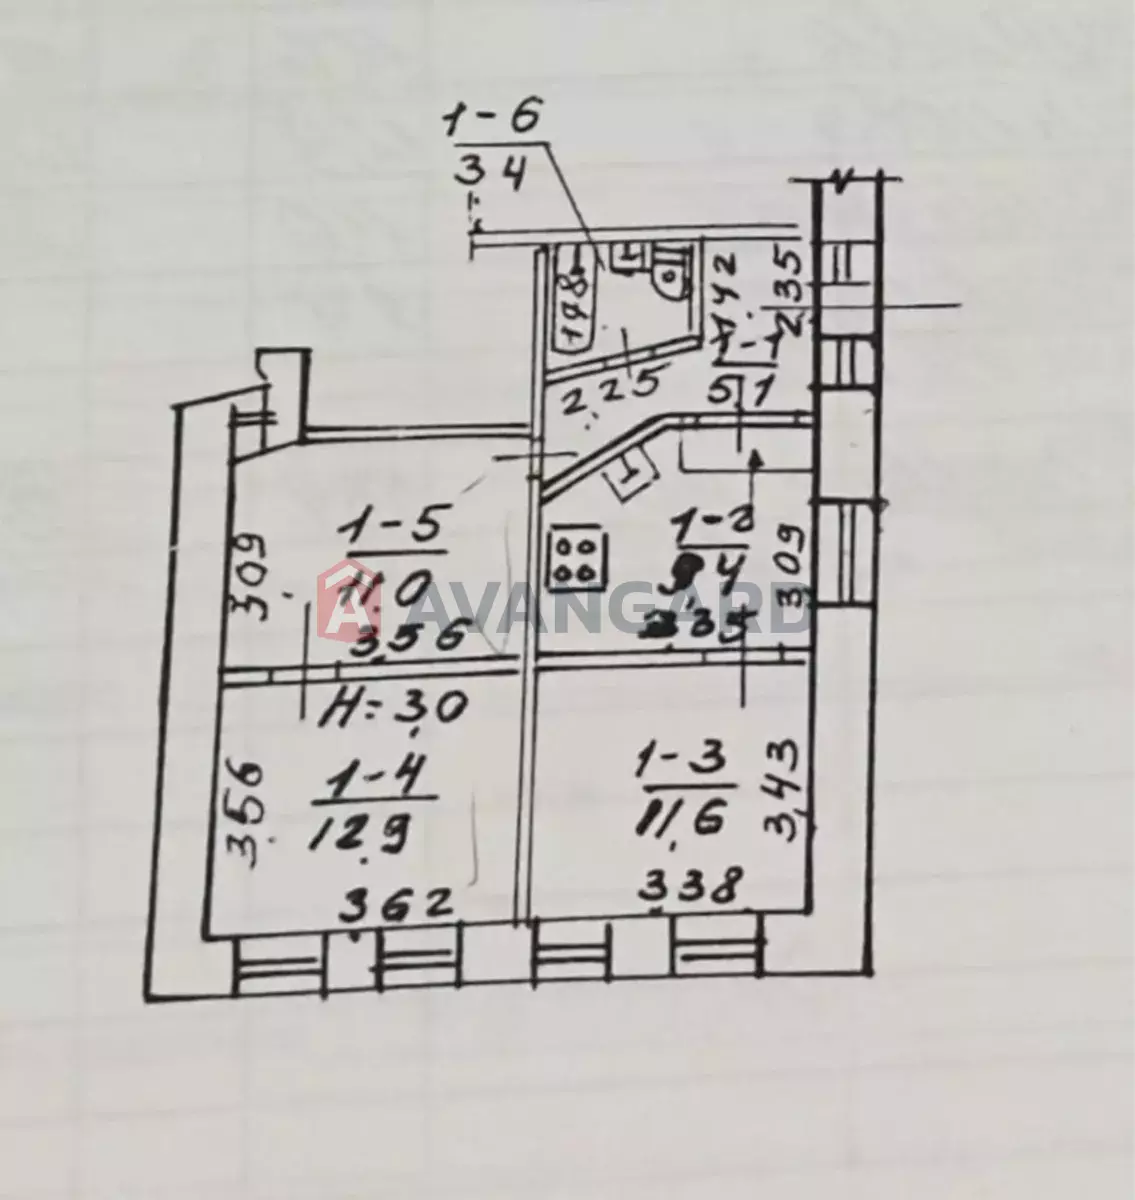 1-6
3,4
1,98
1,42
2,35
1-1
5,1
2,25
1-5
11,0
3,56
3,09
1-2
9,4
3,35
3,09
AVANGARD
H=3,0
1-4
12,9
3,56
3,62
1-3
11,6
3,43
3,38